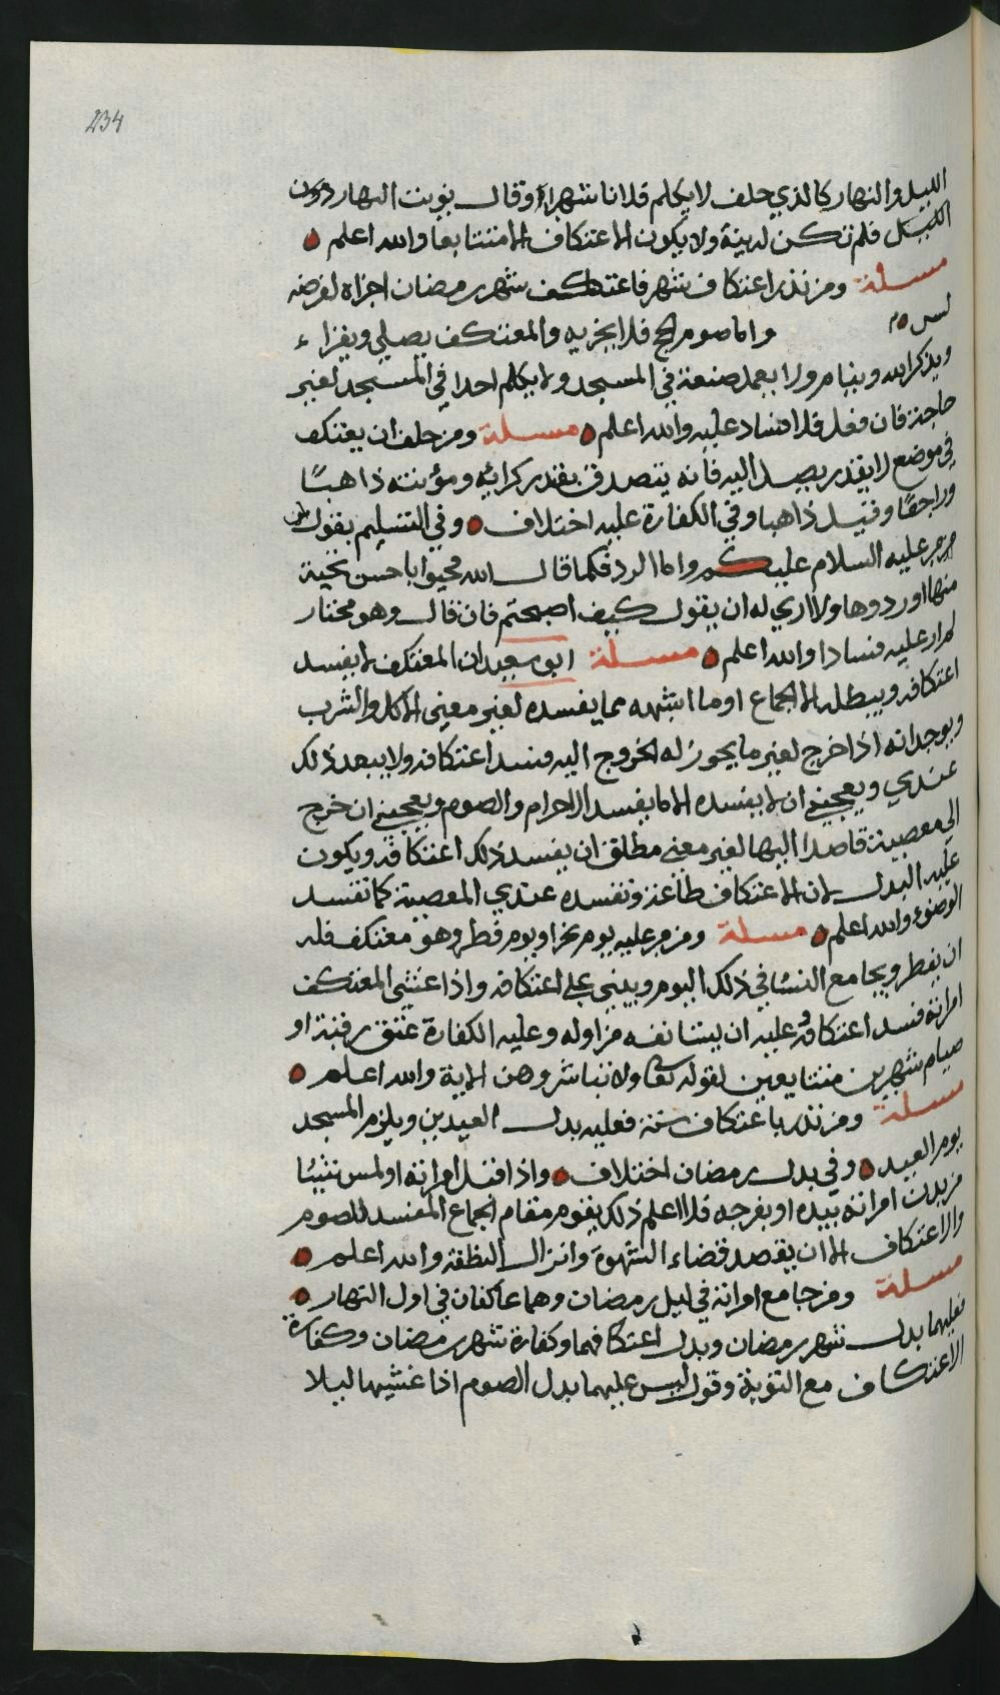 234
الليل والنهار كالذي حلف لا يكلم فلانا شهرا وقال نويت النهار دون
الليل فلم تكن له نية ولا يكون الاعتكاف الا متتابعا والله اعلم
مسلة ومن نذر اعتكاف شهر فاعتكف شهر رمضان اجزاه لفرضه
واما صوم الحج فلا يجزيه والمعتكف يصلي ويقراء
ويذكر الله وينام ولا يعمل صنعة في المسجد ولا يكلم احدا في المسجد لغير
حاجة فان فعل فلا افساد عليه والله اعلم مسلة ومن حلف ان يعتكف
في موضع لا يقدر يصل اليه فانه يتصدق بقدر كرائه ومؤنته ذاهبًا
وراجعًا وقيل ذاهبا وفي الكفارة عليه اختلاف وفي التسليم يقول
عليه السلام عليكم واما الرد فكما قال الله فحيوا باحسن تحية
منها اوردوها ولا اري له ان يقول كيف اصبحتم فان قال وهو مختار
لم ار عليه فسادا والله اعلم مسلة ابو سعيد ان المعتكف لا يفسد
اعتكافه ويبطله الا الجماع اوما اشبهه مما يفسده لغير معنى الاكل والشرب
ويوجد انه اذا خرج لغير ما يجوز له الخروج اليه فسد اعتكافه ولا يبعد ذلك
عندي ويعجبني ان لا يفسده الا ما يفسد الاحرام والصوم ويعجبني ان خرج
الي معصية قاصدا اليها لغير معنى مطلق ان يفسد ذلك اعتكافه ويكون
عليه البدل لان الاعتكاف طاعة وتفسده عندي المعصية كما تفسد
الوضوء والله اعلم مسلة ومن مر عليه يوم نحر او يوم فطر وهو معتكف فله
ان يفطر ويجامع النسا في ذلك اليوم ويبني على اعتكافه واذا غشي المعتكف
امراته فسد اعتكافه وعليه ان يستانفه من اوله وعليه الكفارة عتق رقبة او
صيام شهرين متتابعين لقوله تعالى ولا تباشروهن الاية والله اعلم
مسلة ومن نذر باعتكاف سنة فعليه بدل العيدين ويلزم المسجد
يوم العيد وفي بدل رمضان اختلاف واذا قبل امراته او لمس شيئا
من بدن امراته بيده او بفرجه فلا اعلم ذلك يقوم مقام الجماع المفسد للصوم
والاعتكاف الا ان يقصد قضاء الشهوة وانزال النطفة والله اعلم
مسلة ومن جامع امراته في ليل رمضان وهما عاكفان في اول النهار
فعليهما بدل شهر رمضان وبدل اعتكافهما وكفارة شهر رمضان وكفارة
الاعتكاف مع التوبة وقول ليس عليهما بدل الصوم اذا غشيها ليلا